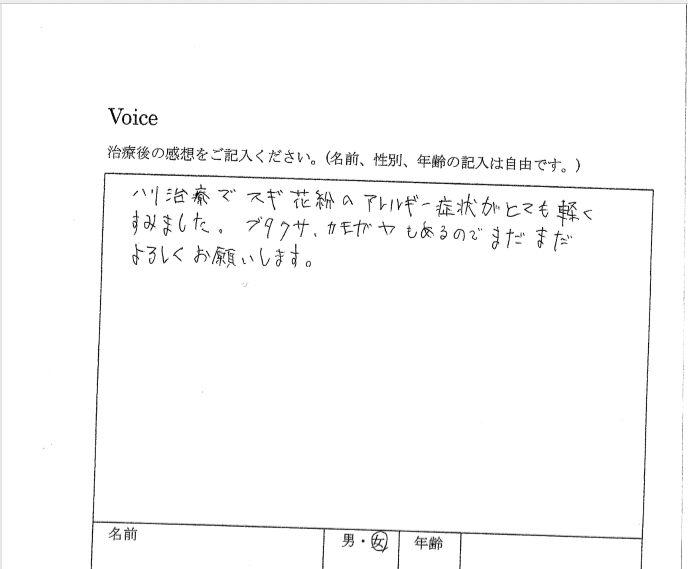 Voice
治療後の感想をご記入ください。(名前、性別、年齢の記入は自由です。)
ハリ治療でスギ花粉のアレルギー症状がとても軽く
すみました。ブタクサ、カモガヤもあるのでまだまだ
よろしくお願いします。
名前 男・女 年齢